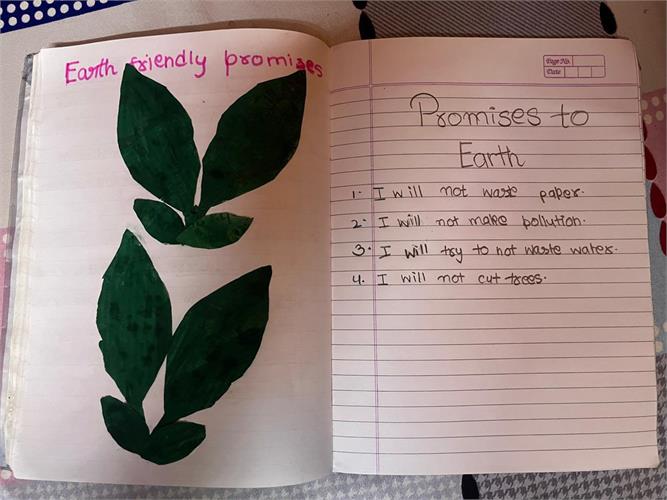 Earth friendly promises
Page No.
Date
Promises to
Earth
1. I will not waste paper.
2. I will not make pollution.
3. I will try to not waste water.
4. I will not cut trees.